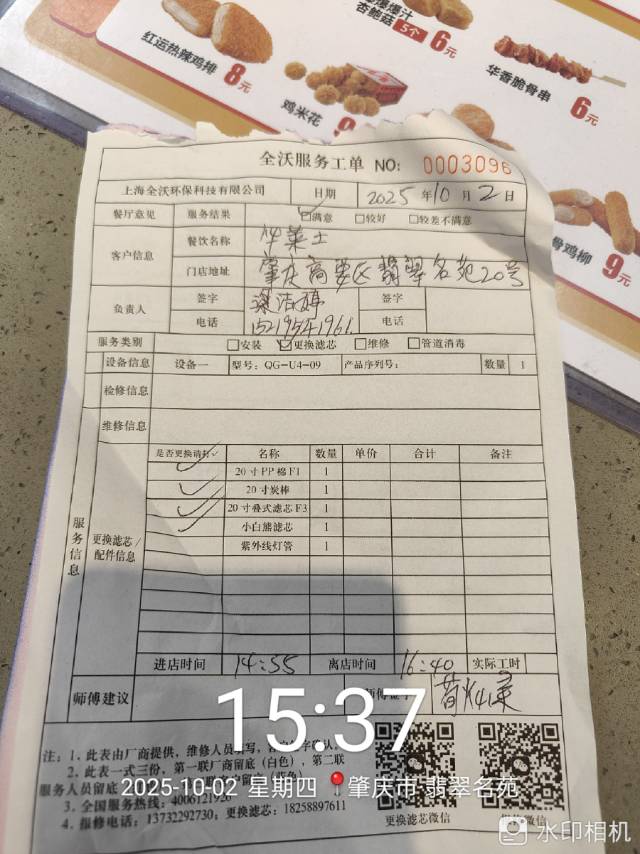 杏鲍菇 5个 6元
红运热辣鸡排 8元
鸡米花 9
华香脆骨串 6元
骨鸡柳 9元
全沃服务工单 NO: 0003096
上海全沃环保科技有限公司 日期 2025年10月2日
餐厅意见 服务结果 ☑满意 □较好 □较差不满意
客户信息 餐饮名称 华莱士
门店地址 肇庆高要区翡翠名苑20号
负责人 签字 签字
电话 15219541961 电话
服务类别 □安装 ☑更换滤芯 □维修 □管道消毒
设备信息 设备一 型号: QG-U4-09 产品序列号: 数量 1
检修信息
维修信息
服务信息
更换滤芯/配件信息
是否更换请打✓ 名称 数量 单价 合计 备注
✓ 20寸PP棉F1 1
✓ 20寸炭棒 1
✓ 20寸叠式滤芯F3 1
✓ 小白熊滤芯 1
紫外线灯管 1
进店时间 14:55 离店时间 16:40 实际工时
师傅建议
15:37
注: 1、此表由厂商提供，维修人员填写，
2、此表一式三份，第一联厂商留底（白色），第二联
服务人员留底
2025-10-02 星期四 肇庆市·翡翠名苑
3、全国服务热线: 4006121926
4、维修电话: 13732292730; 更换滤芯: 18258897611
更换滤芯微信
水印相机